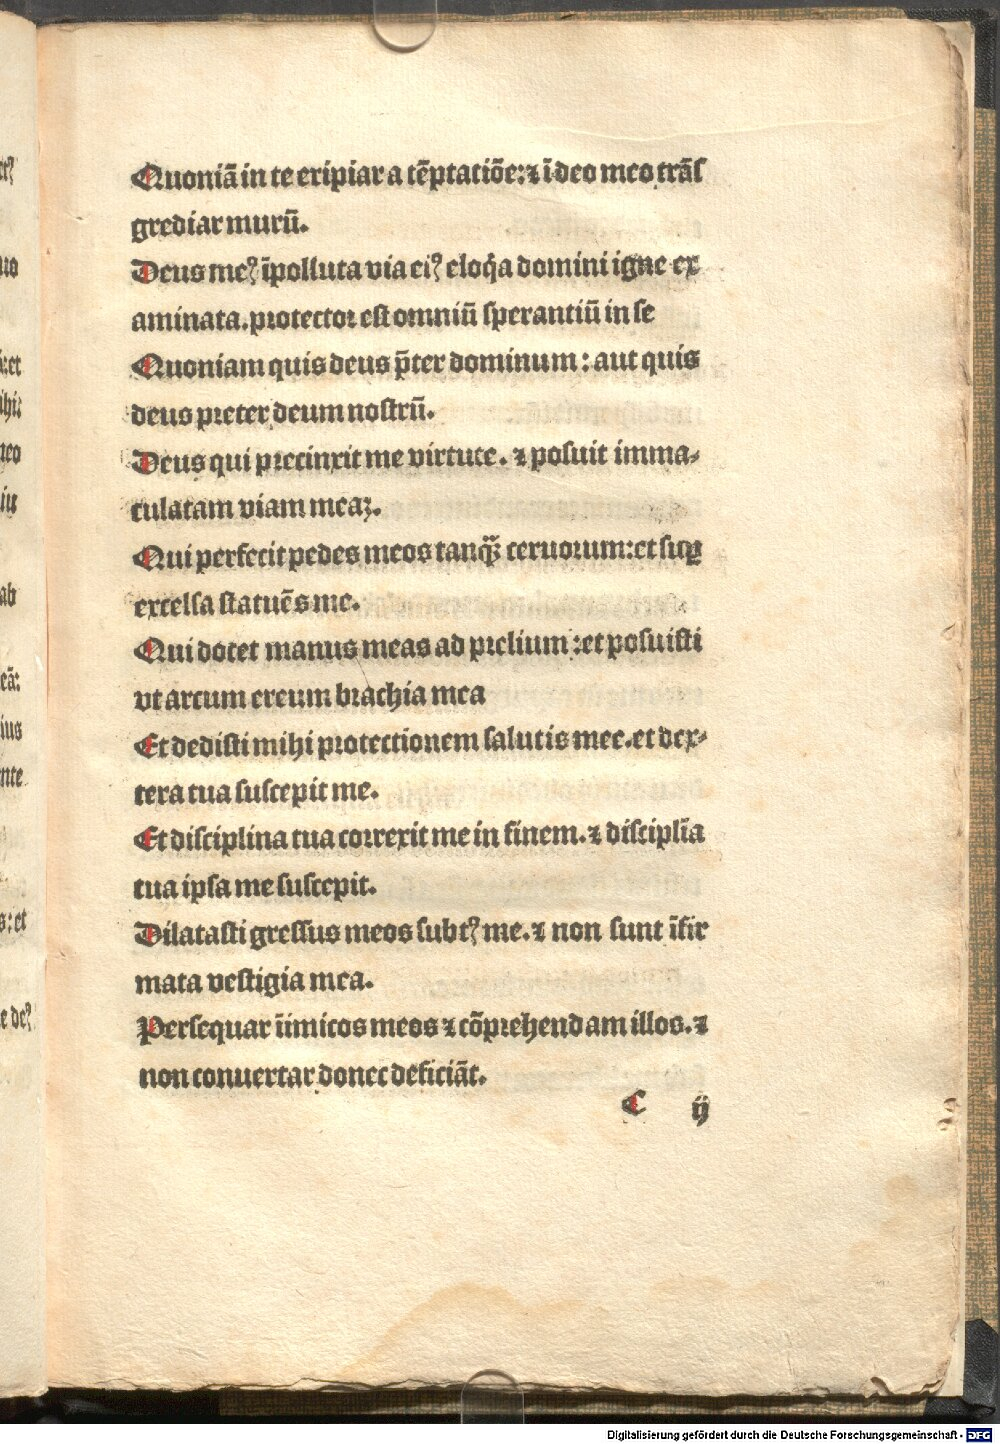 Quoniā in te eripiar a tēptatiōe: ⁊ ī deo meo trāſ
grediar murū.
Deus meꝰ īpolluta via eiꝰ eloq̄a domini igne ex
aminata. protector eſt omniū ſperantiū in ſe
Quoniam quis deus p̄ter dominum: aut quis
deus preter deum noſtrū.
Deus qui precinxit me virtute. ⁊ poſuit imma-
culatam viam meaꝫ.
Qui perfecit pedes meos tanq̄ꝫ ceruorum: et ſuꝑ
excelſa ſtatuēs me.
Qui docet manus meas ad prelium: et poſuiſti
vt arcum ereum brachia mea
Et dediſti mihi protectionem ſalutis mee. et dex-
tera tua ſuſcepit me.
Et diſciplina tua correxit me in finem. ⁊ diſciplīa
tua ipſa me ſuſcepit.
Dilataſti greſſus meos ſubtꝰ me. ⁊ non ſunt īfir
mata veſtigia mea.
Perſequar īimicos meos ⁊ cōprehendam illos. ⁊
non conuertar donec deficiāt.
C ij
Digitalisierung gefördert durch die Deutsche Forschungsgemeinschaft - DFG